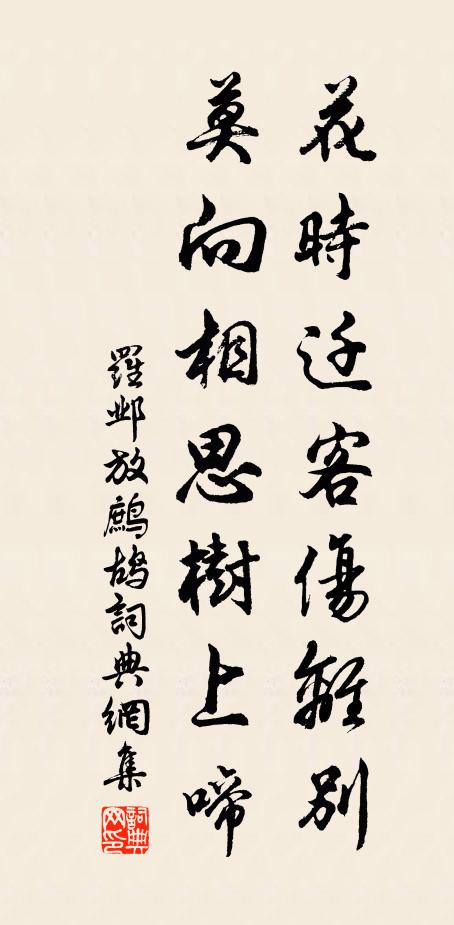 花時迁客傷離別
莫向相思樹上啼
羅鄴放鷓鴣詞典網集
詞典
网印